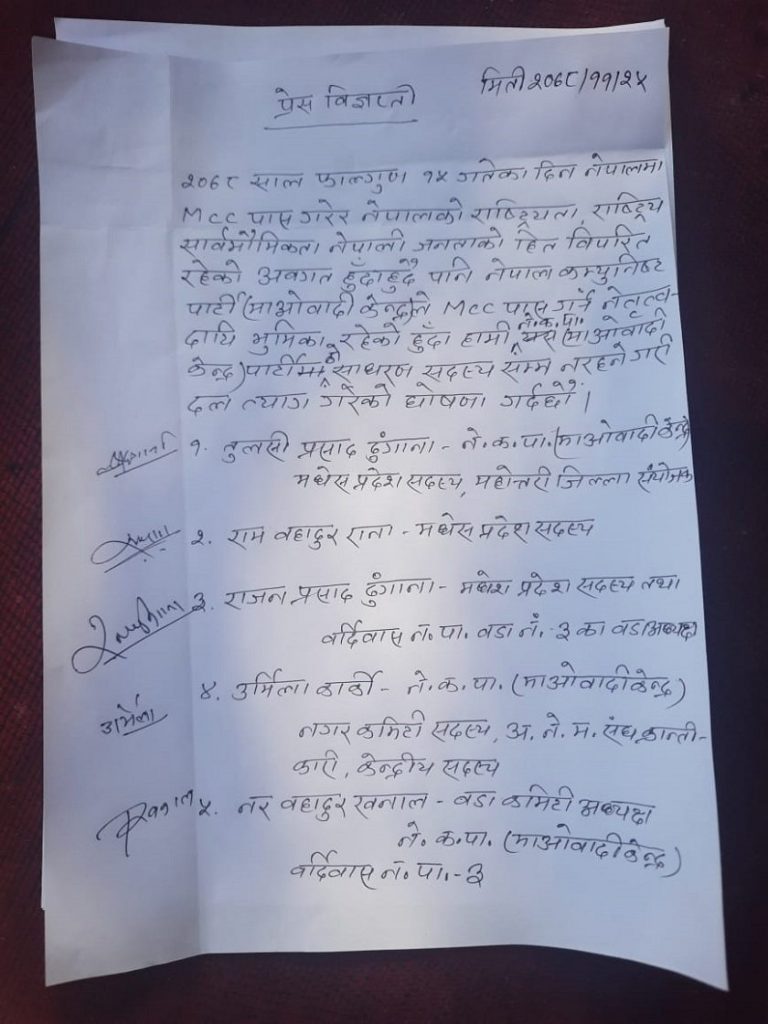 प्रेस विज्ञप्ती
मिती २०७८/११/२५
२०७८ साल फाल्गुण १५ गतेका दिन नेपालमा
MCC पास गरेर नेपालको राष्ट्रियता, राष्ट्रिय
सार्वभौमिकता नेपाली जनताको हित विपरित
रहेको अवगत हुँदाहुदै पनि नेपाल कम्युनिष्ट
पार्टी (माओवादी केन्द्र)ले MCC पास गर्न नेतृत्व-
दायि भुमिका रहेको हुँदा हामी ने.क.पा. (माओवादी
केन्द्र) पार्टीमा को साधरण सदस्य सम्म नरहने गरी
दल त्याग गरेको घोषणा गर्दछौं।
१. तुलसी प्रसाद ढुंगाना - ने.क.पा. (माओवादी केन्द्र)
मधेस प्रदेश सदस्य, महोत्तरी जिल्ला संयोजक
२. राम वहादुर राना - मधेस प्रदेश सदस्य
३. राजन प्रसाद ढुंगाना - मधेश प्रदेश सदस्य तथा
वर्दिवास न.पा. वडा नं.-३ का वडा अध्यक्ष
४. उर्मिला कार्की - ने.क.पा. (माओवादी केन्द्र)
उर्मिला
नगर कमिटी सदस्य, अ.ने.म. संघ क्रान्ती-
कारी, केन्द्रीय सदस्य
५. नर वहादुर खनाल - वडा कमिटी अध्यक्ष
ने.क.पा. (माओवादी केन्द्र)
वर्दिवास न.पा.-३